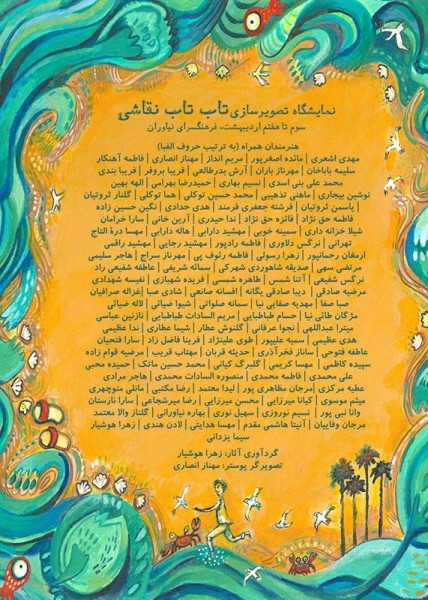 نمایشگاه تصویرسازی تاب تاب نقاشی
سوم تا هفتم اردیبهشت، فرهنگسرای نیاوران
هنرمندان همراه (به ترتیب حروف الفبا)
مهدی اشعری | مائده اصغرپور | مریم انداز | مهناز انصاری | فاطمه آهنگار
سلیمه باباخان | مهرناز باران | آرش بدرطالعی | فریبا بروفر | فریبا بندی
محمد علی بنی اسدی | نسیم بهاری | حمیدرضا بهرامی | الهه بهین
نوشین بیجاری | ماهنی تذهیبی | محمد حسین توکلی | هما توکلی | گلنار ثروتیان
یاسمن ثروتیان | فرشته جعفری فرمند | هدی حدادی | نگین حسین زاده
فاطمه حق نژاد | فائزه حق نژاد | ندا حیدری | آرین خانی | سارا خرامان
شیلا خزانه داری | سمینه خوبی | مهشید دارابی | هاله دارابی | مهسا درة التاج
تهرانی | نرگس دلاوری | فاطمه رادپور | مهشید رجایی | مهشید راقمی
ارمغان رحمانپور | زهرا رسولی | فاطمه رئوف پی | مهرناز سراج | هاجر سلیمی
مرتضی سهی | صدیقه شاهوردی شهرکی | سمانه شریفی | عاطفه شفیعی راد
نرگس شفیعی | آتنا شمس | طاهره شمسی | فریده شهبازی | نفیسه شهدادی
مرضیه صادقی | دیبا صادقی یگانه | افسانه صانعی | شادی صبا | غزاله صرافیان
صبا صفا | مهدیه صفایی نیا | سمانه صلواتی | شیوا ضیائی | لاله ضیائی
مژگان طائی نیا | حسام طباطبایی | مریم السادات طباطبایی | نازنین عباسی
میترا عبداللهی | نجوا عرفانی | گلنوش عطار | شیما عطاری | ندا عظیمی
هدی عظیمی | سمیه علیپور | طوی علینژاد | فرینا فاضل زاد | سارا فتحیان
عاطفه فتوحی | ساناز فخرآذری | حدیثه قربان | مهتاب قریب | مرضیه قوام زاده
سپیده کاظمی | مهسا کریمی | گلبرگ کیانی | محمد حسین ماتک | حمیده محبی
علی محمدی | فاطمه محمدی | منصوره السادات محمدی | هاجر مرادی
عطیه مرکزی | مرجان مظاهری پور | لیدا معتمد | رضا مکتبی | مانلی منوچهری
میثم موسوی | کیانا میرزایی | محسن میرزایی | رضا میرشجاعی | سارا نارستان
وانا نبی پور | نسیم نوروزی | سهیل نوری | بهاره نیاورانی | گلناز والا معتمد
مرجان وفاییان | آنیتا هاشمی مقدم | مهسا هدایتی | لادن هندی | زهرا هوشیار
سیما یزدانی
گردآوری آثار: زهرا هوشیار
تصویرگر پوستر: مهناز انصاری